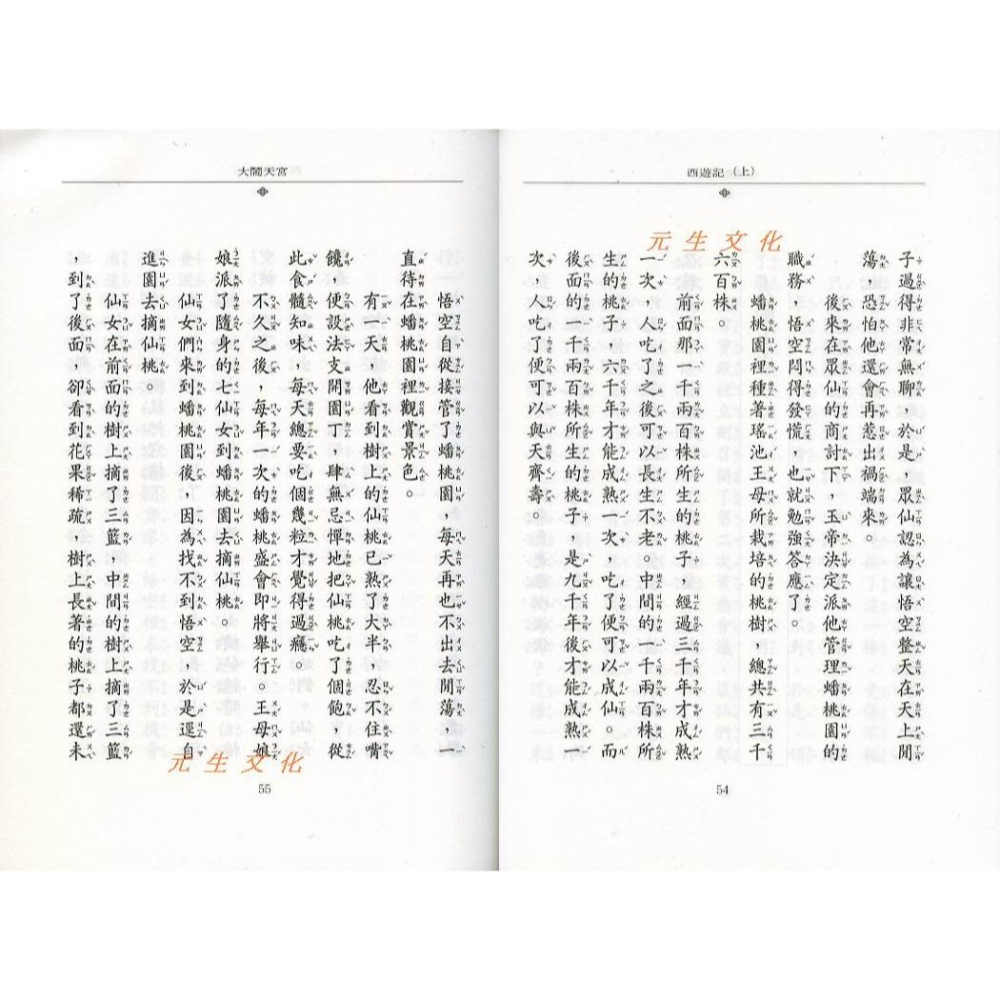 西遊記（上）
元生文化
子過得非常無聊。於是，眾仙認為讓悟空整天在天上閒
蕩，恐怕他還會再惹出禍端來。
後來在眾仙的商討下，玉帝決定派他管理蟠桃園的
職務，悟空悶得發慌，也就勉強答應了。
蟠桃園裡種著瑤池王母所栽培的桃樹，總共有三千
六百株。
前面那一千兩百株所生的桃子，經過三千年才成熟
一次，人吃了之後可以長生不老。中間的一千兩百株所
生的桃子，六千年才能成熟一次，吃了便可以成仙。而
後面的一千兩百株所生的桃子，是九千年後才能成熟一
次，人吃了便可以與天齊壽。
54
大鬧天宮
悟空自從接管了蟠桃園，每天再也不出去閒蕩，一
直待在蟠桃園裡觀賞景色。
有一天，他看到樹上的仙桃已熟了大半，忍不住嘴
饞，便設法支開園丁，肆無忌憚地把仙桃吃了個飽，從
此食髓知味，每天總要吃個幾粒才覺得過癮。
不久之後，每年一次的蟠桃盛會即將舉行。王母娘
娘派了隨身的七仙女到蟠桃園去摘仙桃。
仙女們來到蟠桃園後，因為找不到悟空，於是逕自
進園去摘仙桃。
仙女在前面的樹上摘了三籃，中間的樹上摘了三籃
，到了後面，卻看到花果稀疏，樹上長著的桃子都還未
元生文化
55